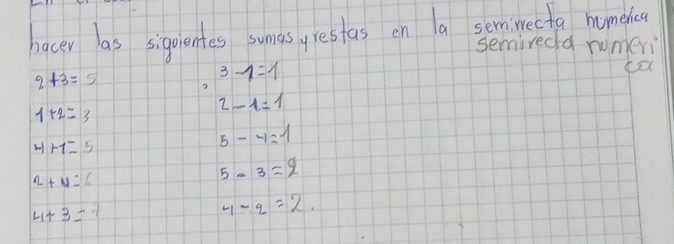 hacer las siguientes sumas y restas en la semirrecta numérica
semirecta numeri
ca
2+3=5
3-1=1
1+2=3
2-1=1
4+1=5
5-4=1
2+4=6
5-3=2
4+3=
4-2=2.